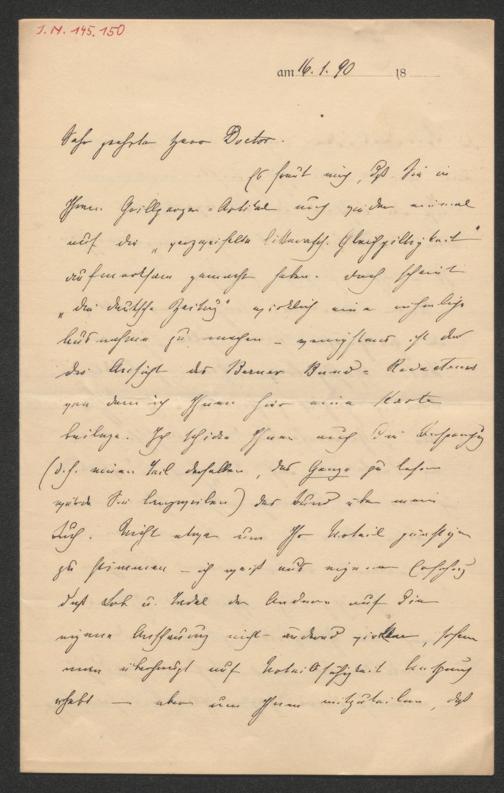 J.N. 145.150
am 16. 1. 90 18
Sehr geehrter Herr Doctor.
Es freut mich, daß Sie in
Ihrem Grillparzer-Artikel auch wieder einmal
auf die „verzweifelte litterarische Gleichgiltigkeit"
aufmerksam gemacht haben. Doch scheint
„die deutsche Zeitung" wirklich eine rühmliche
Ausnahme zu machen – wenigstens ist das
die Ansicht des Berner Bund-Redacteurs
von dem ich Ihnen hier eine Karte
beilege. Ich schicke Ihnen auch die Besprechung
(d.h. einen Teil derselben, das Ganze zu lesen
würde Sie langweilen) des Bund über mein
Buch. Nicht etwa um Ihr Urteil günstig
zu stimmen – ich weiß aus eigener Erfahrung
daß Lob u. Tadel der Anderen auf die
eigene Anschauung nicht ändernd wirken, sofern
man überhaupt auf Urteilsfähigkeit Anspruch
erhebt — aber um Ihnen mitzuteilen, daß